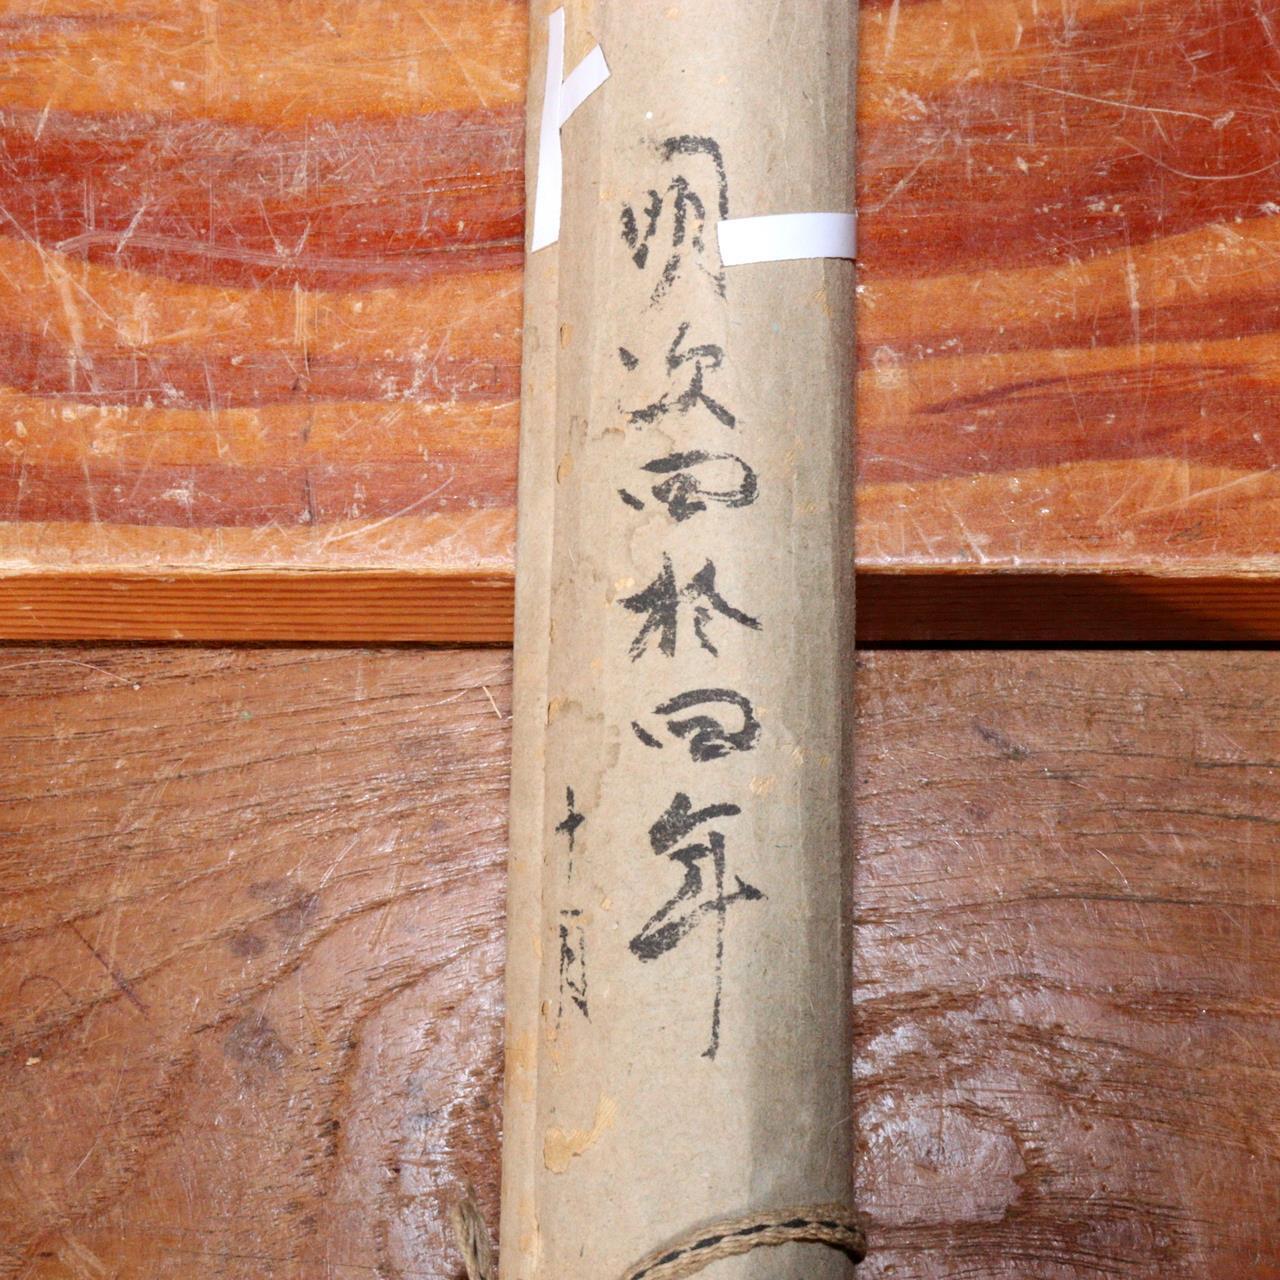 明治四拾四年
十一月